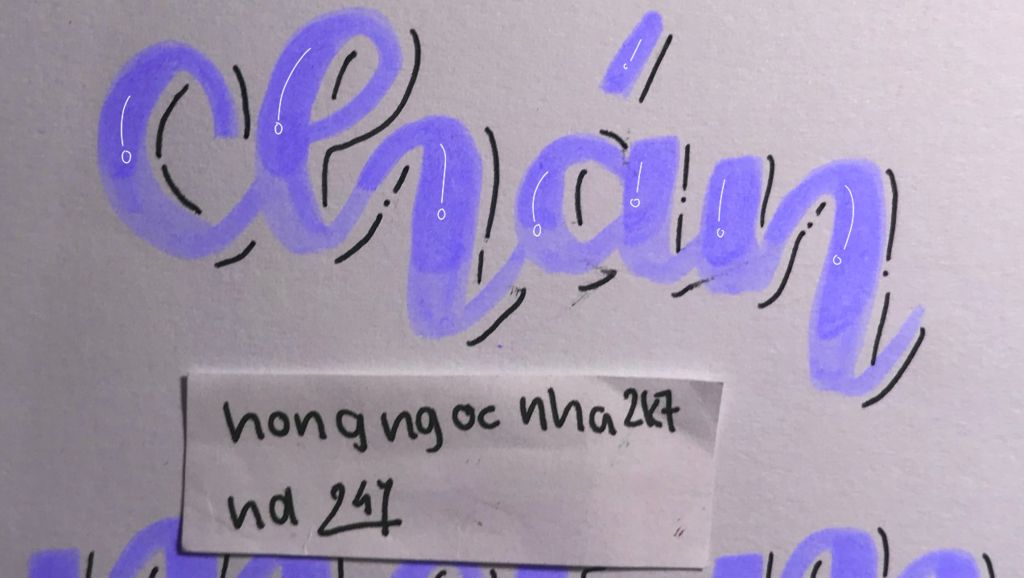 chán
hong ngoc nha2k7
nd 247